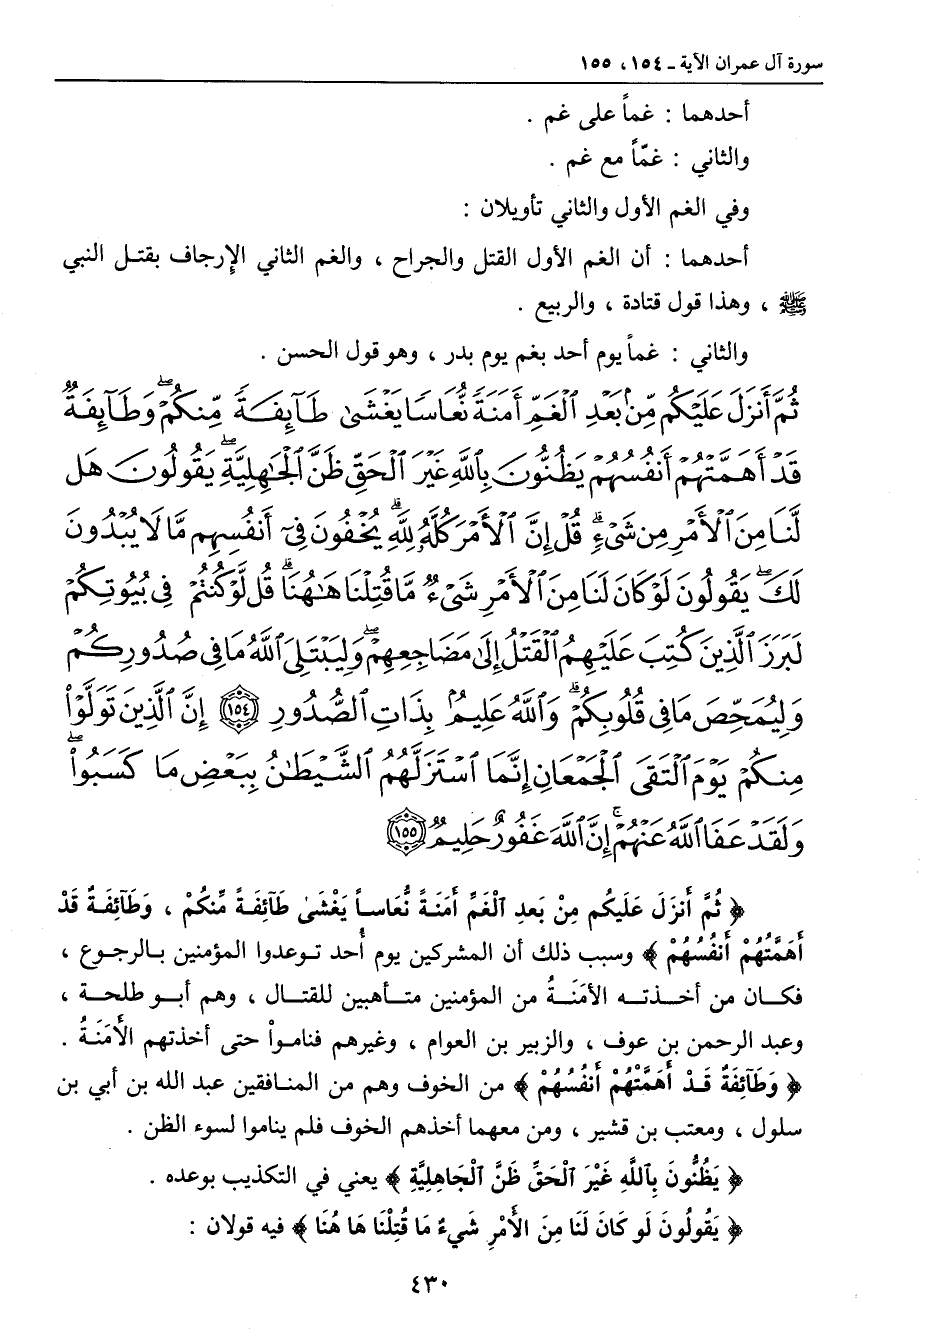 سورة آل عمران الآية ـ ١٥٤ ، ١٥٥
أحدهما : غماً على غم .
والثاني : غمّاً مع غم .
وفي الغم الأول والثاني تأويلان :
أحدهما : أن الغم الأول القتل والجراح ، والغم الثاني الإرجاف بقتـل النبي
ﷺ ، وهذا قول قتادة ، والربيع .
والثاني : غماً يوم أحد بغم يوم بدر ، وهو قول الحسن .
ثُمَّ أَنزَلَ عَلَيْكُم مِّنۢ بَعْدِ ٱلْغَمِّ أَمَنَةً نُّعَاسًا يَغْشَىٰ طَآئِفَةً مِّنكُمْ ۖ وَطَآئِفَةٌ
قَدْ أَهَمَّتْهُمْ أَنفُسُهُمْ يَظُنُّونَ بِٱللَّهِ غَيْرَ ٱلْحَقِّ ظَنَّ ٱلْجَٰهِلِيَّةِ ۖ يَقُولُونَ هَل
لَّنَا مِنَ ٱلْأَمْرِ مِن شَىْءٍ ۗ قُلْ إِنَّ ٱلْأَمْرَ كُلَّهُۥ لِلَّهِ ۗ يُخْفُونَ فِىٓ أَنفُسِهِم مَّا لَا يُبْدُونَ
لَكَ ۖ يَقُولُونَ لَوْ كَانَ لَنَا مِنَ ٱلْأَمْرِ شَىْءٌ مَّا قُتِلْنَا هَٰهُنَا ۗ قُل لَّوْ كُنتُمْ فِى بُيُوتِكُمْ
لَبَرَزَ ٱلَّذِينَ كُتِبَ عَلَيْهِمُ ٱلْقَتْلُ إِلَىٰ مَضَاجِعِهِمْ ۖ وَلِيَبْتَلِىَ ٱللَّهُ مَا فِى صُدُورِكُمْ
وَلِيُمَحِّصَ مَا فِى قُلُوبِكُمْ ۗ وَٱللَّهُ عَلِيمٌۢ بِذَاتِ ٱلصُّدُورِ ١٥٤ إِنَّ ٱلَّذِينَ تَوَلَّوْا۟
مِنكُمْ يَوْمَ ٱلْتَقَى ٱلْجَمْعَانِ إِنَّمَا ٱسْتَزَلَّهُمُ ٱلشَّيْطَٰنُ بِبَعْضِ مَا كَسَبُوا۟ ۖ
وَلَقَدْ عَفَا ٱللَّهُ عَنْهُمْ ۗ إِنَّ ٱللَّهَ غَفُورٌ حَلِيمٌ ١٥٥
﴿ ثُمَّ أَنزَلَ عَلَيْكُم مِنْ بَعدِ الْغَمِّ أَمَنَةً نُّعَاساً يَغْشَىٰ طَآئِفَةً مِّنكُمْ ، وَطَآئِفَةٌ قَدْ
أَهَمَّتْهُمْ أَنفُسُهُمْ ﴾ وسبب ذلك أن المشركين يوم أُحد تـوعدوا المؤمنين بـالرجوع ،
فكـان من أخـذتـه الأمَنَـةُ من المؤمنين متـأهبين للقتـال ، وهم أبـو طلحـة ،
وعبد الرحمن بن عوف ، والزبير بن العوام ، وغيرهم فنامواْ حتى أخذتهم الأَمَنَـةُ .
﴿ وَطَآئِفَةٌ قَـدْ أَهَمَّتْهُمْ أَنفُسُهُمْ ﴾ من الخوف وهم من المنـافقين عبـد الله بن أبي بن
سلول ، ومعتب بن قشير ، ومن معهما أخذهم الخوف فلم يناموا لسوء الظن .
﴿ يَظُنُّونَ بِاللَّهِ غَيْرَ الْحَقِّ ظَنَّ الْجَاهِلِيَّةِ ﴾ يعني في التكذيب بوعده .
﴿ يَقُولُونَ لَو كَانَ لَنَا مِنَ الْأَمْرِ شَيءٌ مَا قُتِلْنَا هَا هُنَا ﴾ فيه قولان :
٤٣٠